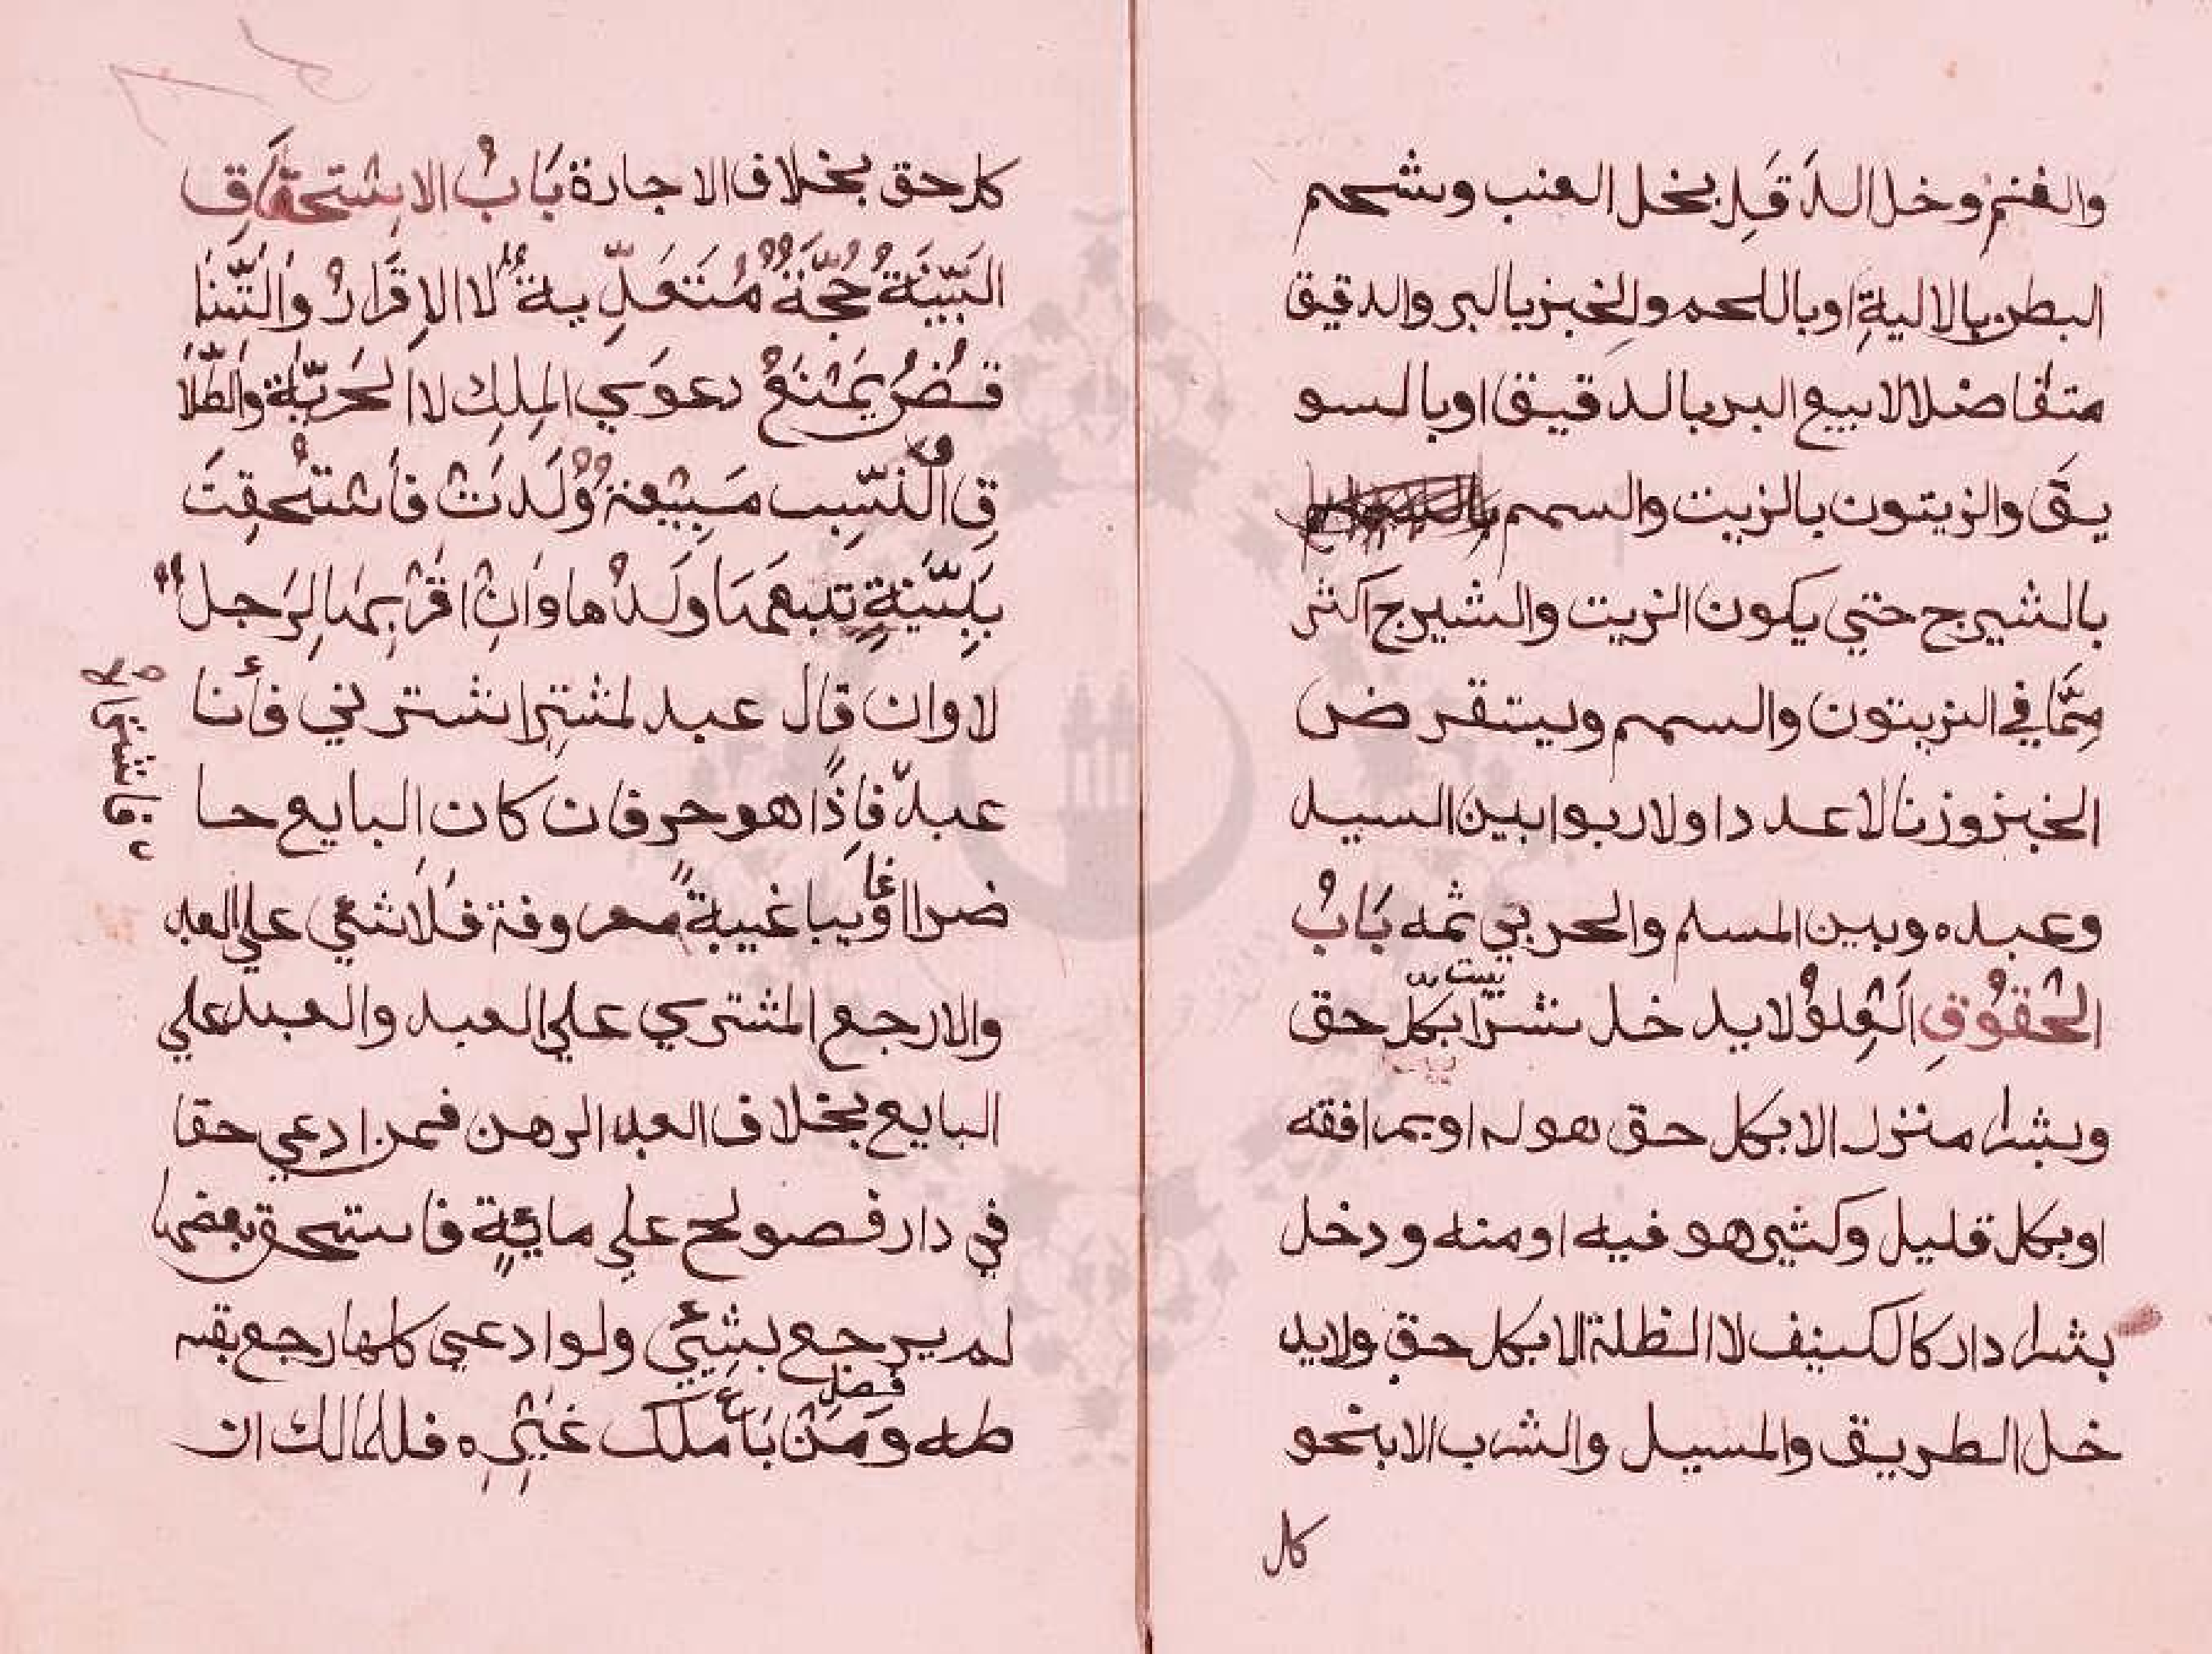 والغنم وخل الدَقَلِ بخل العنب وشحم
البطن بالاليةِ اوباللحم والخبز بالبر والدقيق
متفاضلا لا بيع البر بالدقيق اوبالسو
يق والزيتون بالزيت والسمسم
بالشيرج حتي يكون الزيت والشيرج اكثر
مِمَّا في الزيتون والسمسم ويستقرض
الخبز وزنا لا عددا ولا ربوا بين السيد
وعبده وبين المسلم والحربي ثمه بَابُ
الحُقُوُقِ العِلوُ لا يدخل بشرا بيت بكلّ حق
وبشرا منزل الا بكل حق هو له او بمرافقه
او بكل قليل وكثير هو فيه او منه ودخل
بشرا دار كالكنيف لا الظلة الا بكل حق ولا يد
خل الطريق والمسيل والشرب الا بنحو
كل
كل حق بخلاف الاجارة بَابُ الاِسْتحقَاقِ
البَيِّنَةُ حُجَّةٌ مُتَعَدِّيةٌ لا الاِقَرَارُ والتَّنَا
قُضُ يَمْنَعُ دعوَي المِلِك لا الحَرِيّة والطَّلَا
قِ والنَسِب مَبِيْعَةٌ وُلَدَتْ فاَسْتُحِقتَ
بِبَيِّنَةٍ تبعهَا ولَدُها وانِ اقَرَّ بِهَا لِرَجلٌ
لا وان قال عبد لمشترٍ اشترني فأنا
عبدٌ فاِذًا هو حر فان كان البايع حا
فاشتراه لا
ضرا او غايبا غيبةً معروفة فلا شئي علي العبد
والا رجع المشتري علي العبد والعبد علي
البايع بخلاف العبد الرهن فمن ادعي حقا
في دار فصولح علي مائيةٍ فاستحق بعضها
لم يرجع بشئيٍ ولو ادعي كلها رجع بقسـ
فصل
طه وَمَنْ بَاع ملك غَيْرِهِ فللمالك ان